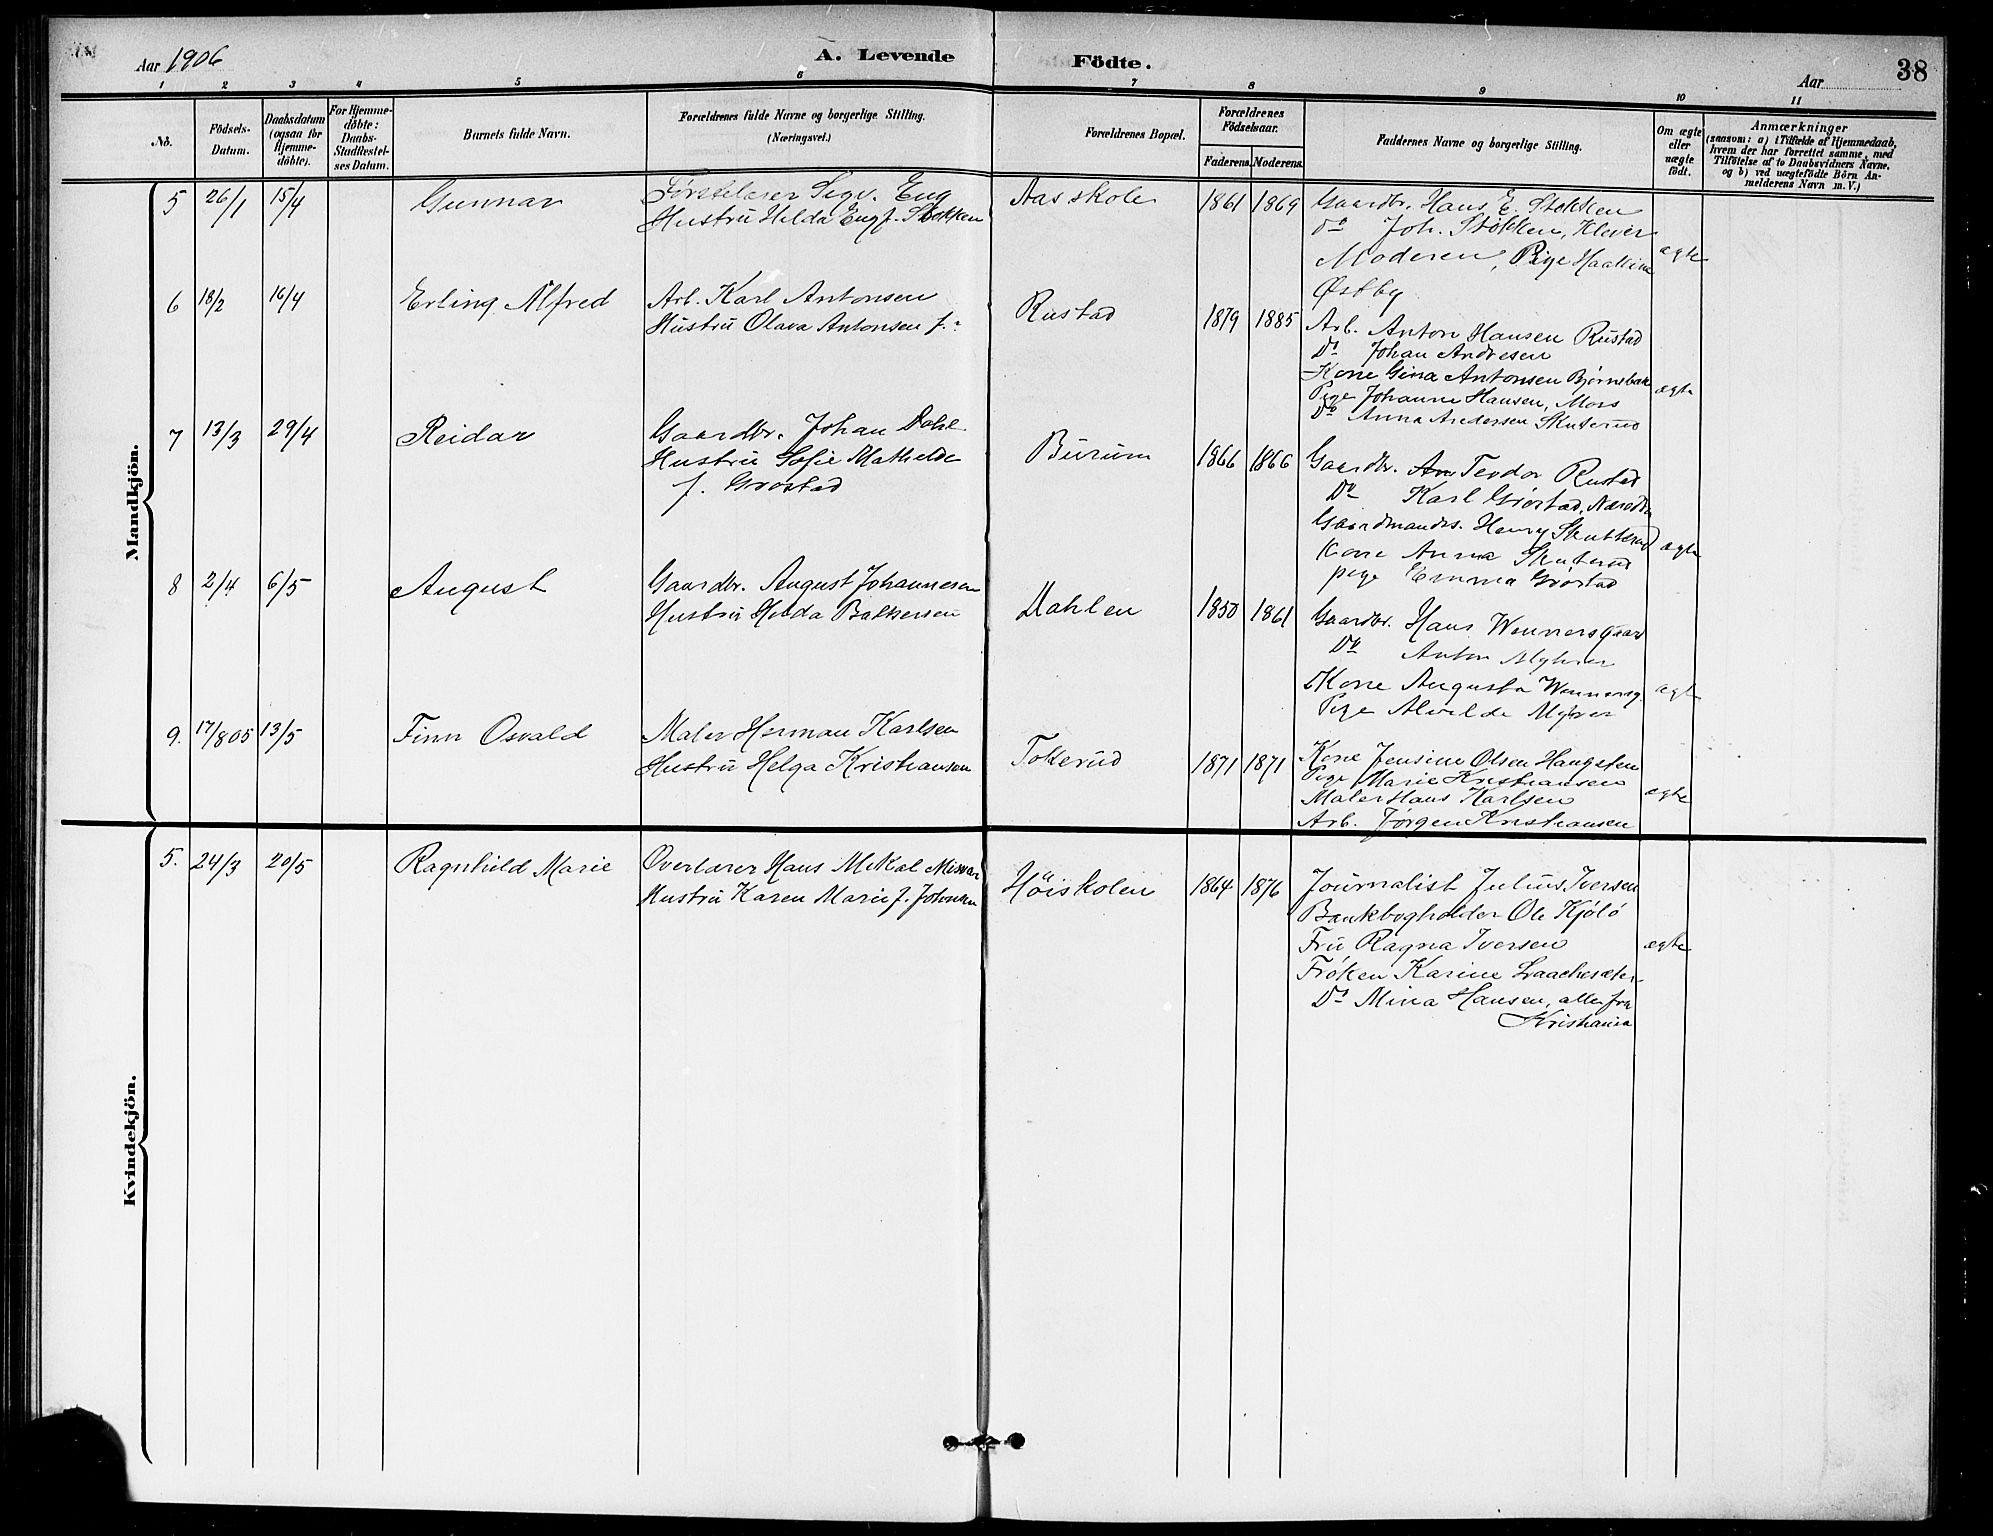 Aar 1906
A. Levende
Födte.
Aar
38
1 2 3 4 5 6 7 8 9 10 11
No.
Födsels-
Datum.
Daabsdatum
(ogsaa for
Hjemme-
döbte).
For Hjemme-
döbte:
Daabs-
Stadfæstel-
ses Datum.
Barnets fulde Navn.
Forældrenes fulde Navne og borgerlige Stilling.
(Næringsvei.)
Forældrenes Bopæl.
Forældrenes
Födselsaar.
Faderens. Moderens.
Faddernes Navne og borgerlige Stilling.
Om ægte
eller
uægte
födt.
Anmærkninger
(saasom: a) i Tilfælde af Hjemmedaab,
hvem der har forrettet samme, med
Tilföielse af to Daabsvidners Navne,
og b) ved uægtefödte Börn An-
melderens Navn m. V.)
Mandkjön.
5 26/1 15/4 Gunnar
Førstelærer Sigv. Eng
Hustru Helda Eng f. Stokken
Aas skole 1861 1869
Gaardbr. Hans E. Stokken
do Joh. Stokken, Klever
Moderen, Pige
Østby
ægte
6 18/2 16/4 Erling Alfred
Arb. Karl Antonsen
Hustru Olava Antonsen f.
Rustad 1879 1885
Arb. Anton Hansen Rustad
Do Johan Andresen
Kone Gina Antonsen Bjørnebek
Pige Johanne Hansen, Moss
Do Anna Andersen Skuterud
ægte
7 13/3 29/4 Reidar
Gaardbr. Johan Dahl
Hustru Sofie Mathilde
f. Grøstad
Burum 1866 1866
Gaardbr. An Teodor Rustad
Do Karl Grøstad,
Gaardmands. Henry Skutterud
Kone Anna Skuterud
pige Emma Grøstad
ægte
8 2/4 6/5 August
Gaardbr. August Johannesen
Hustru Hilda
Dahlen 1850 1861
Gaardbr. Hans Wennersgaard
Do Anton Myhrer
Kone Augusta Wennersg.
Pige Alvilde Myhrer
ægte
9. 17/8 05 13/5 Finn Osvald
Maler Herman Karlsen
Hustru Helga Kristiansen
Tokerud 1871 1871
Kone Jensine Olsen Haugsten
Pige Marie Kristiansen
Maler Hans Karlsen
Arb. Jørgen Kristiansen
ægte
Kvindekjön.
5. 24/3 20/5 Ragnhild Marie
Overlærer Hans Mikal
Hustru Karen Marie f. Johnsen
Höiskolen 1864 1876
Journalist Julius Iversen
Bankbogholder Ole Kjölö
Fru Ragna Iversen
Frøken Karine
Do Mina Hansen, alle fra
Kristiania
ægte